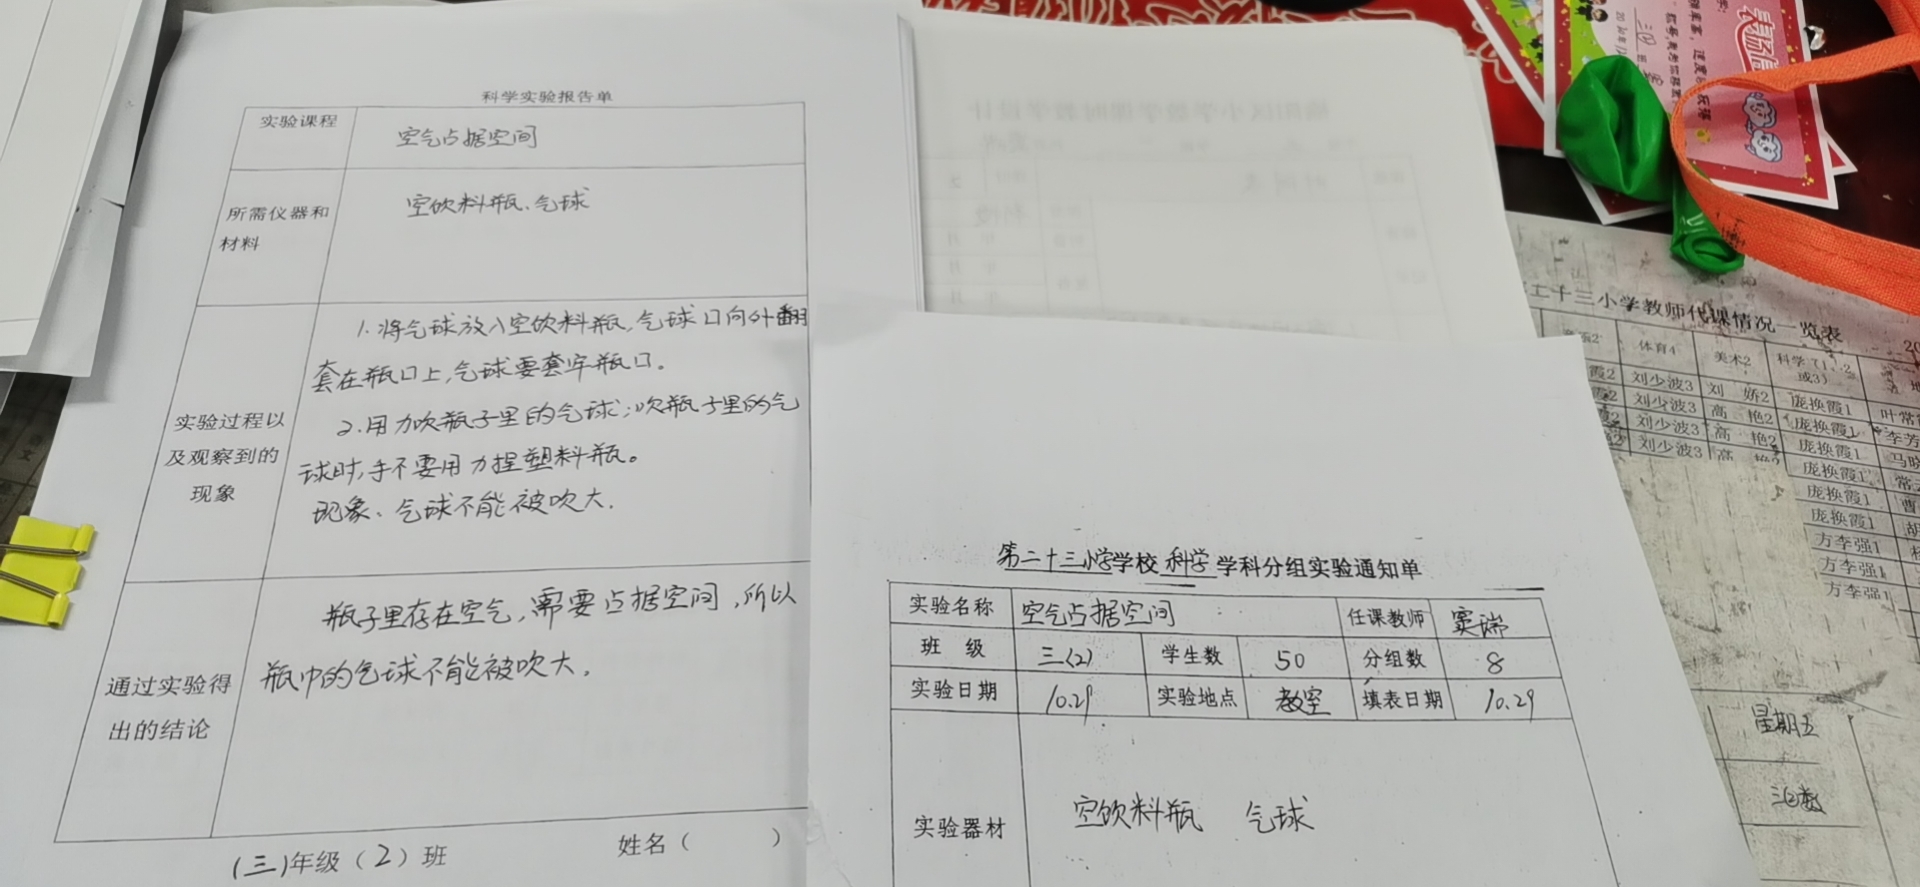 科学实验报告单
实验课程
空气占据空间
所需仪器和
材料
空饮料瓶、气球
实验过程以
及观察到的
现象
1.将气球放入空饮料瓶,气球口向外翻
套在瓶口上,气球要套牢瓶口。
2.用力吹瓶子里的气球;吹瓶子里的气
球时,手不要用力捏塑料瓶。
现象:气球不能被吹大.
通过实验得
出的结论
瓶子里存在空气,需要占据空间,所以
瓶中的气球不能被吹大.
(三)年级(2)班 姓名( )
第二十三小学学校 科学 学科分组实验通知单
实验名称 空气占据空间 任课教师 窦瑞
班 级 三(2) 学生数 50 分组数 8
实验日期 10.29 实验地点 教室 填表日期 10.29
实验器材 空饮料瓶 气球
表扬信
二十三小学教师代课情况一览表
体育4 美术2 科学(1、2
或3)
霞2 刘少波3 刘 娇2 庞换霞1
刘少波3 高 艳2 庞换霞1
刘少波3 高 艳2 庞换霞1
刘少波3 高 艳2 庞换霞1
庞换霞1
庞换霞1
方李强1
方李强1
方李强1
星期五